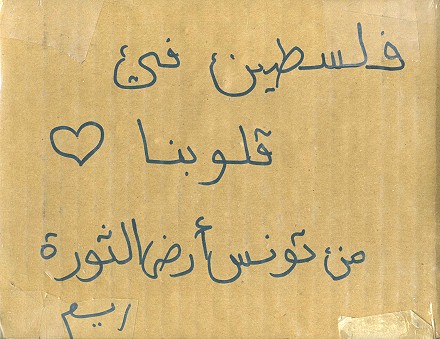 فلسطين في
قلوبنا ♡
من تونس أرض الثورة
ريم